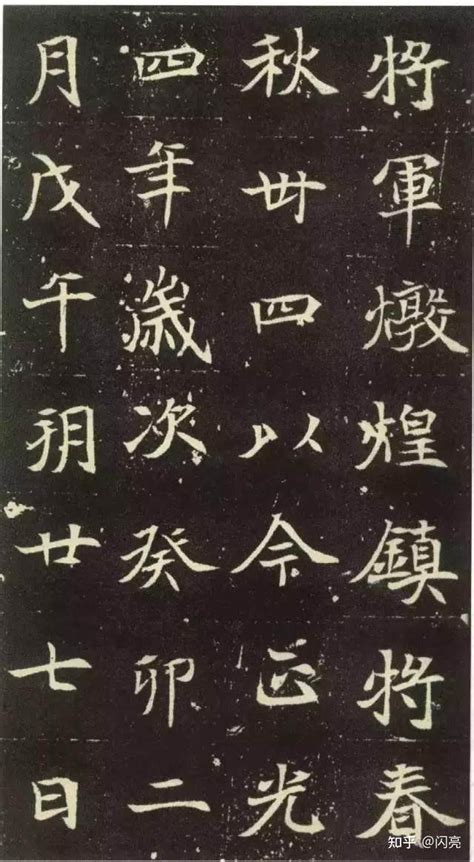 将軍燉煌鎮将春
秋卅四以令正光
四年歲次癸卯二
月戊午朔廿七日
知乎 @闪亮